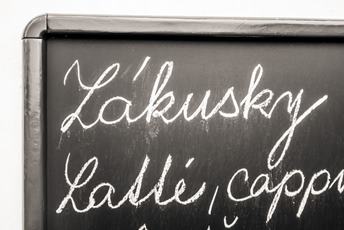 Zákusky
Latté, capp